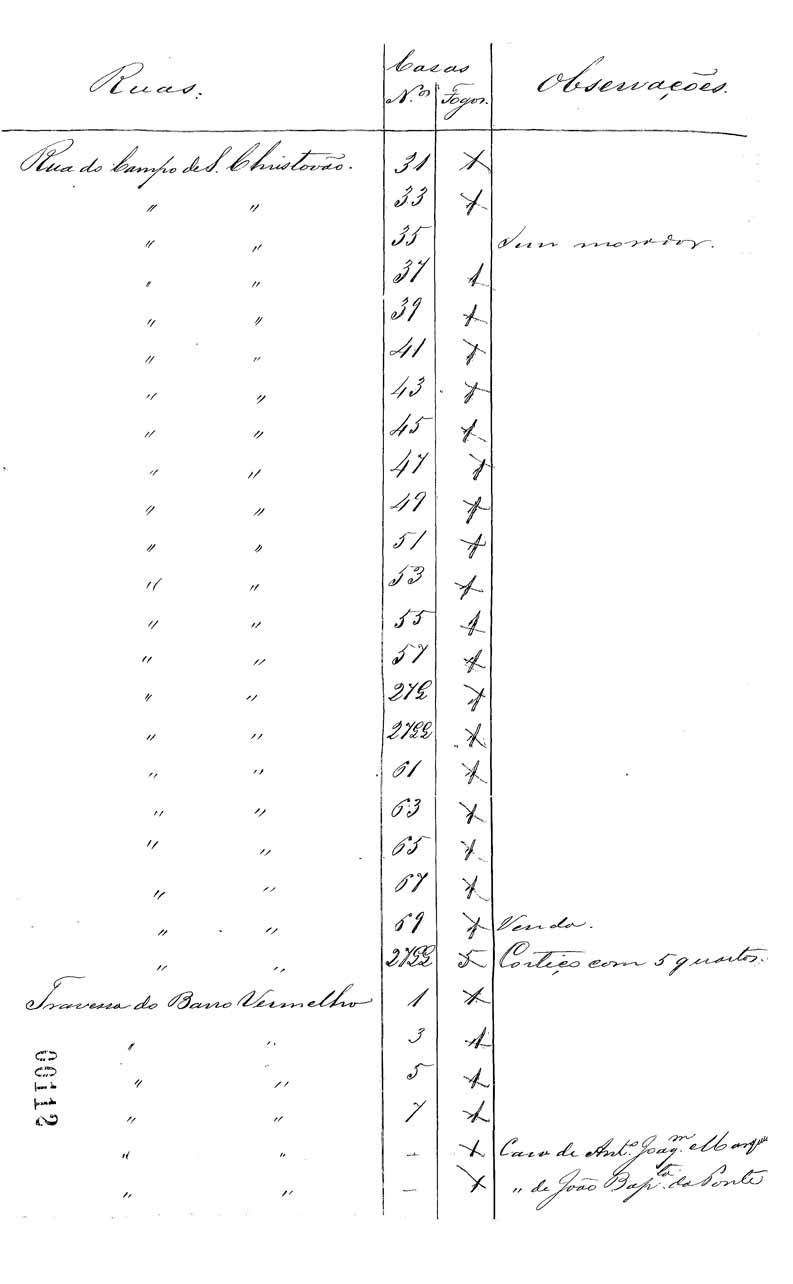 Ruas. Casas Observações.
N.os Fogos.
Rua do Campo de S. Christovão. 31 1
" " 33 1
" " 35 Sem morador.
" " 37 1
" " 39 1
" " 41 1
" " 43 1
" " 45 1
" " 47 1
" " 49 1
" " 51 1
" " 53 1
" " 55 1
" " 57 1
" " 1
" " 1
" " 61 1
" " 63 1
" " 65 1
" " 67 1
" " 69 1 Venda.
" " 5 Cortiço com 5 quartos.
Travessa do Barro Vermelho 1 1
" " 3 1
" " 5 1
" " 7 1
" " – 1 Casa de Ant.o Joaq.m Marques
" " – 1 " de João Bap.ta da Ponte
00112